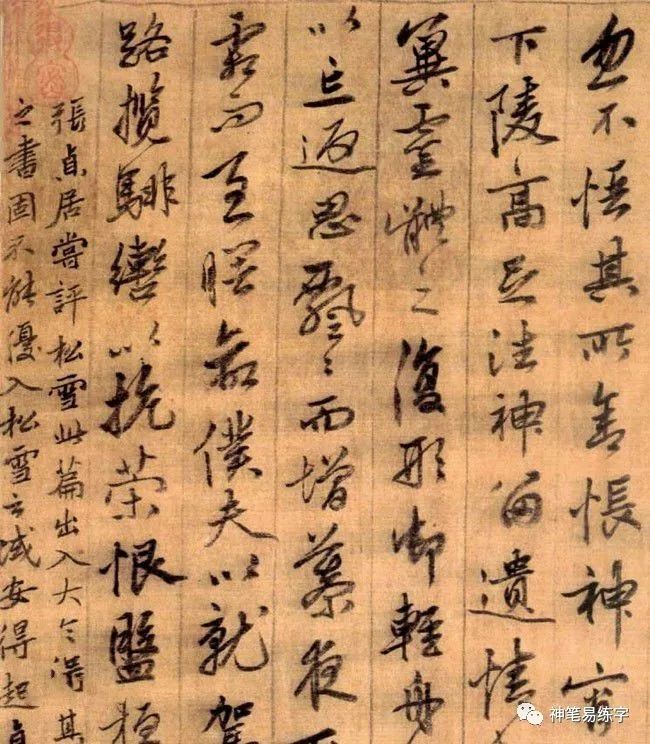 忽不悟其所舍悵神宵
下陵高足往神留遺情
冀靈體之復形御輕舟
以忘返思飄〻而增慕夜
霜而至曙命僕夫以就駕
路攬騑轡以抗策恨盤桓
張貞居嘗評松雪此篇出入大令得其
之書固不能優入松雪之域安得起貞
神笔易练字